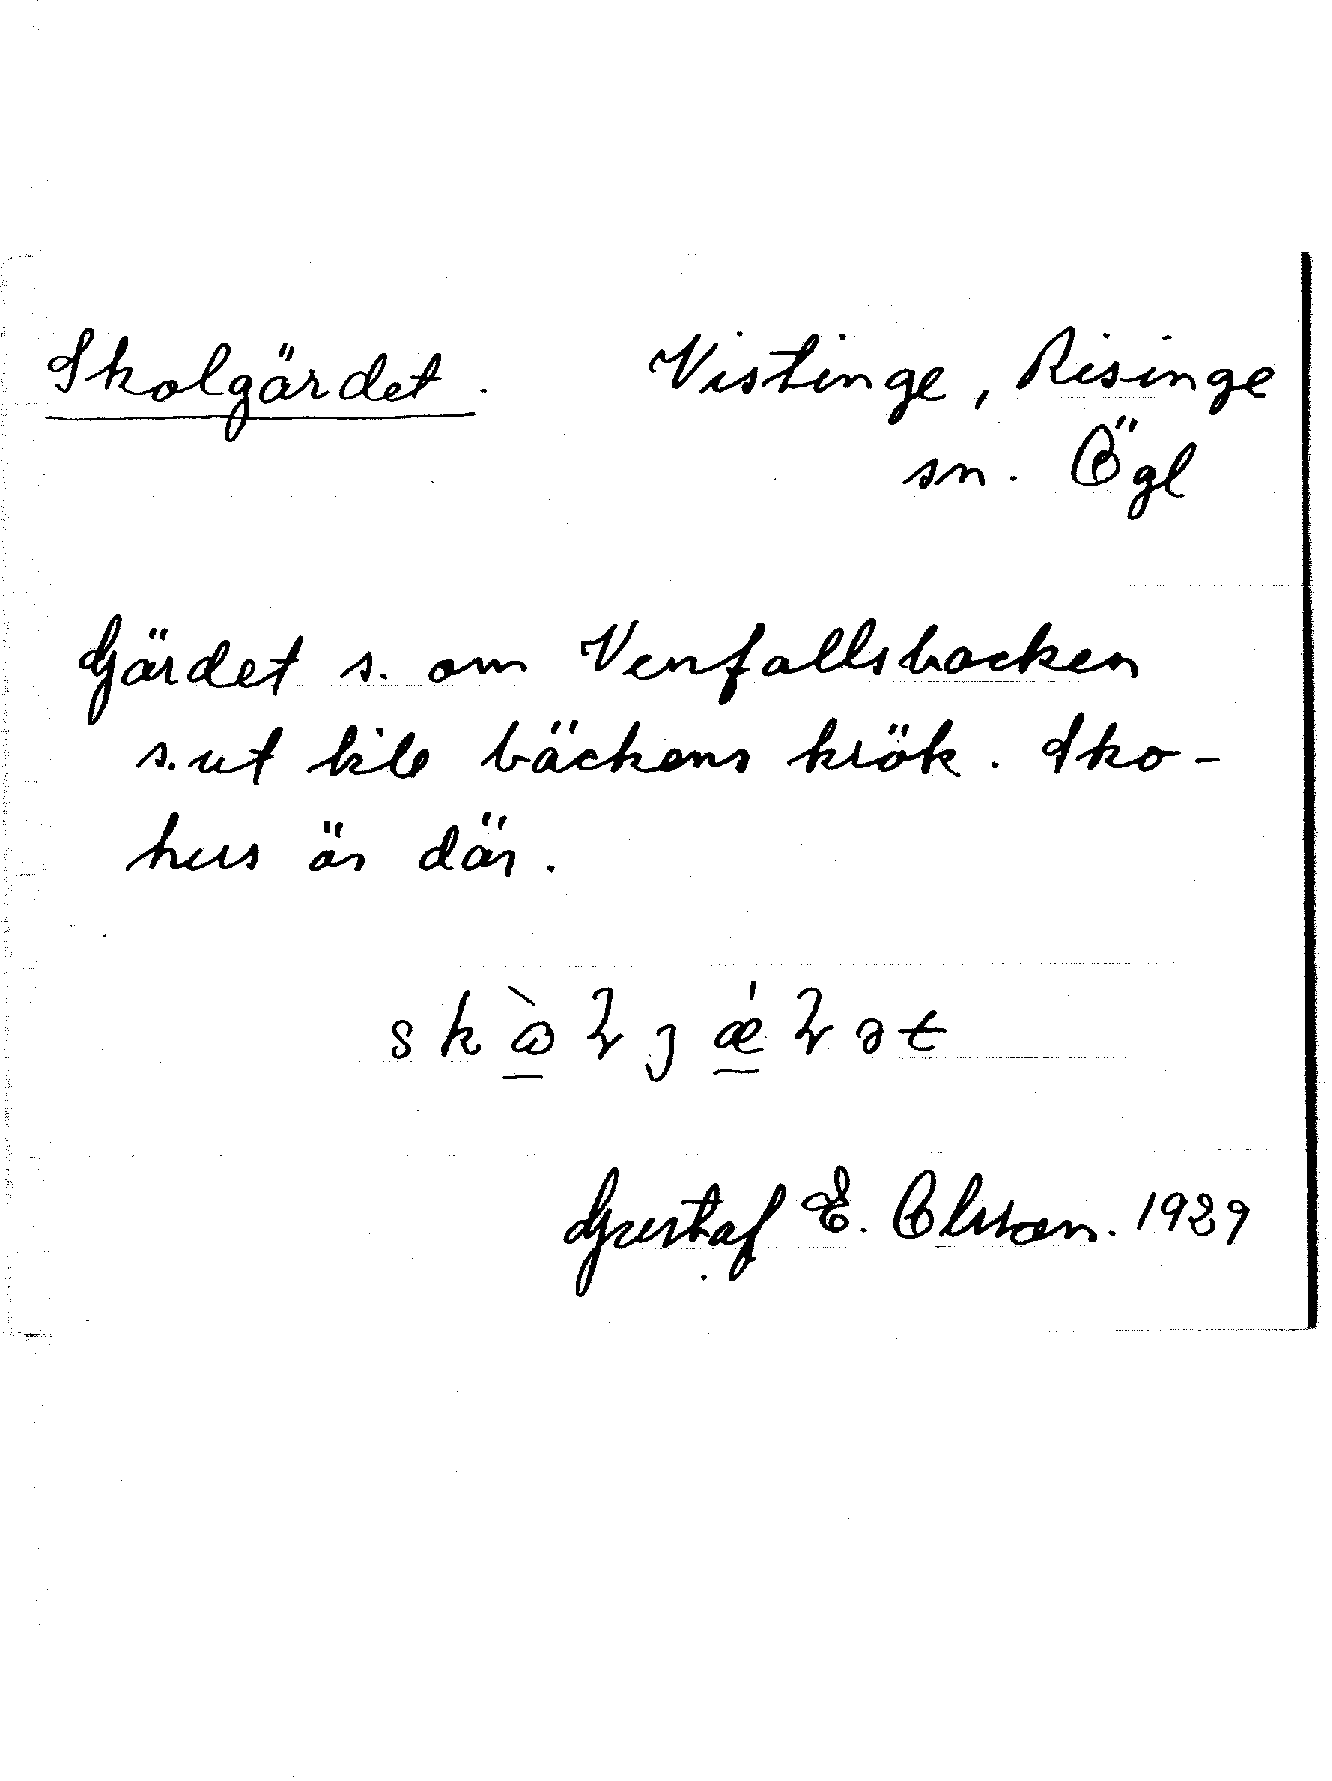 Skolgärdet. Vistinge, Risinge
sn. Ögl
Gärdet s. om Venfallsbacken
s. ut bäckens krök. Sko-
hus är där.
Gustaf E. Olsson. 1929